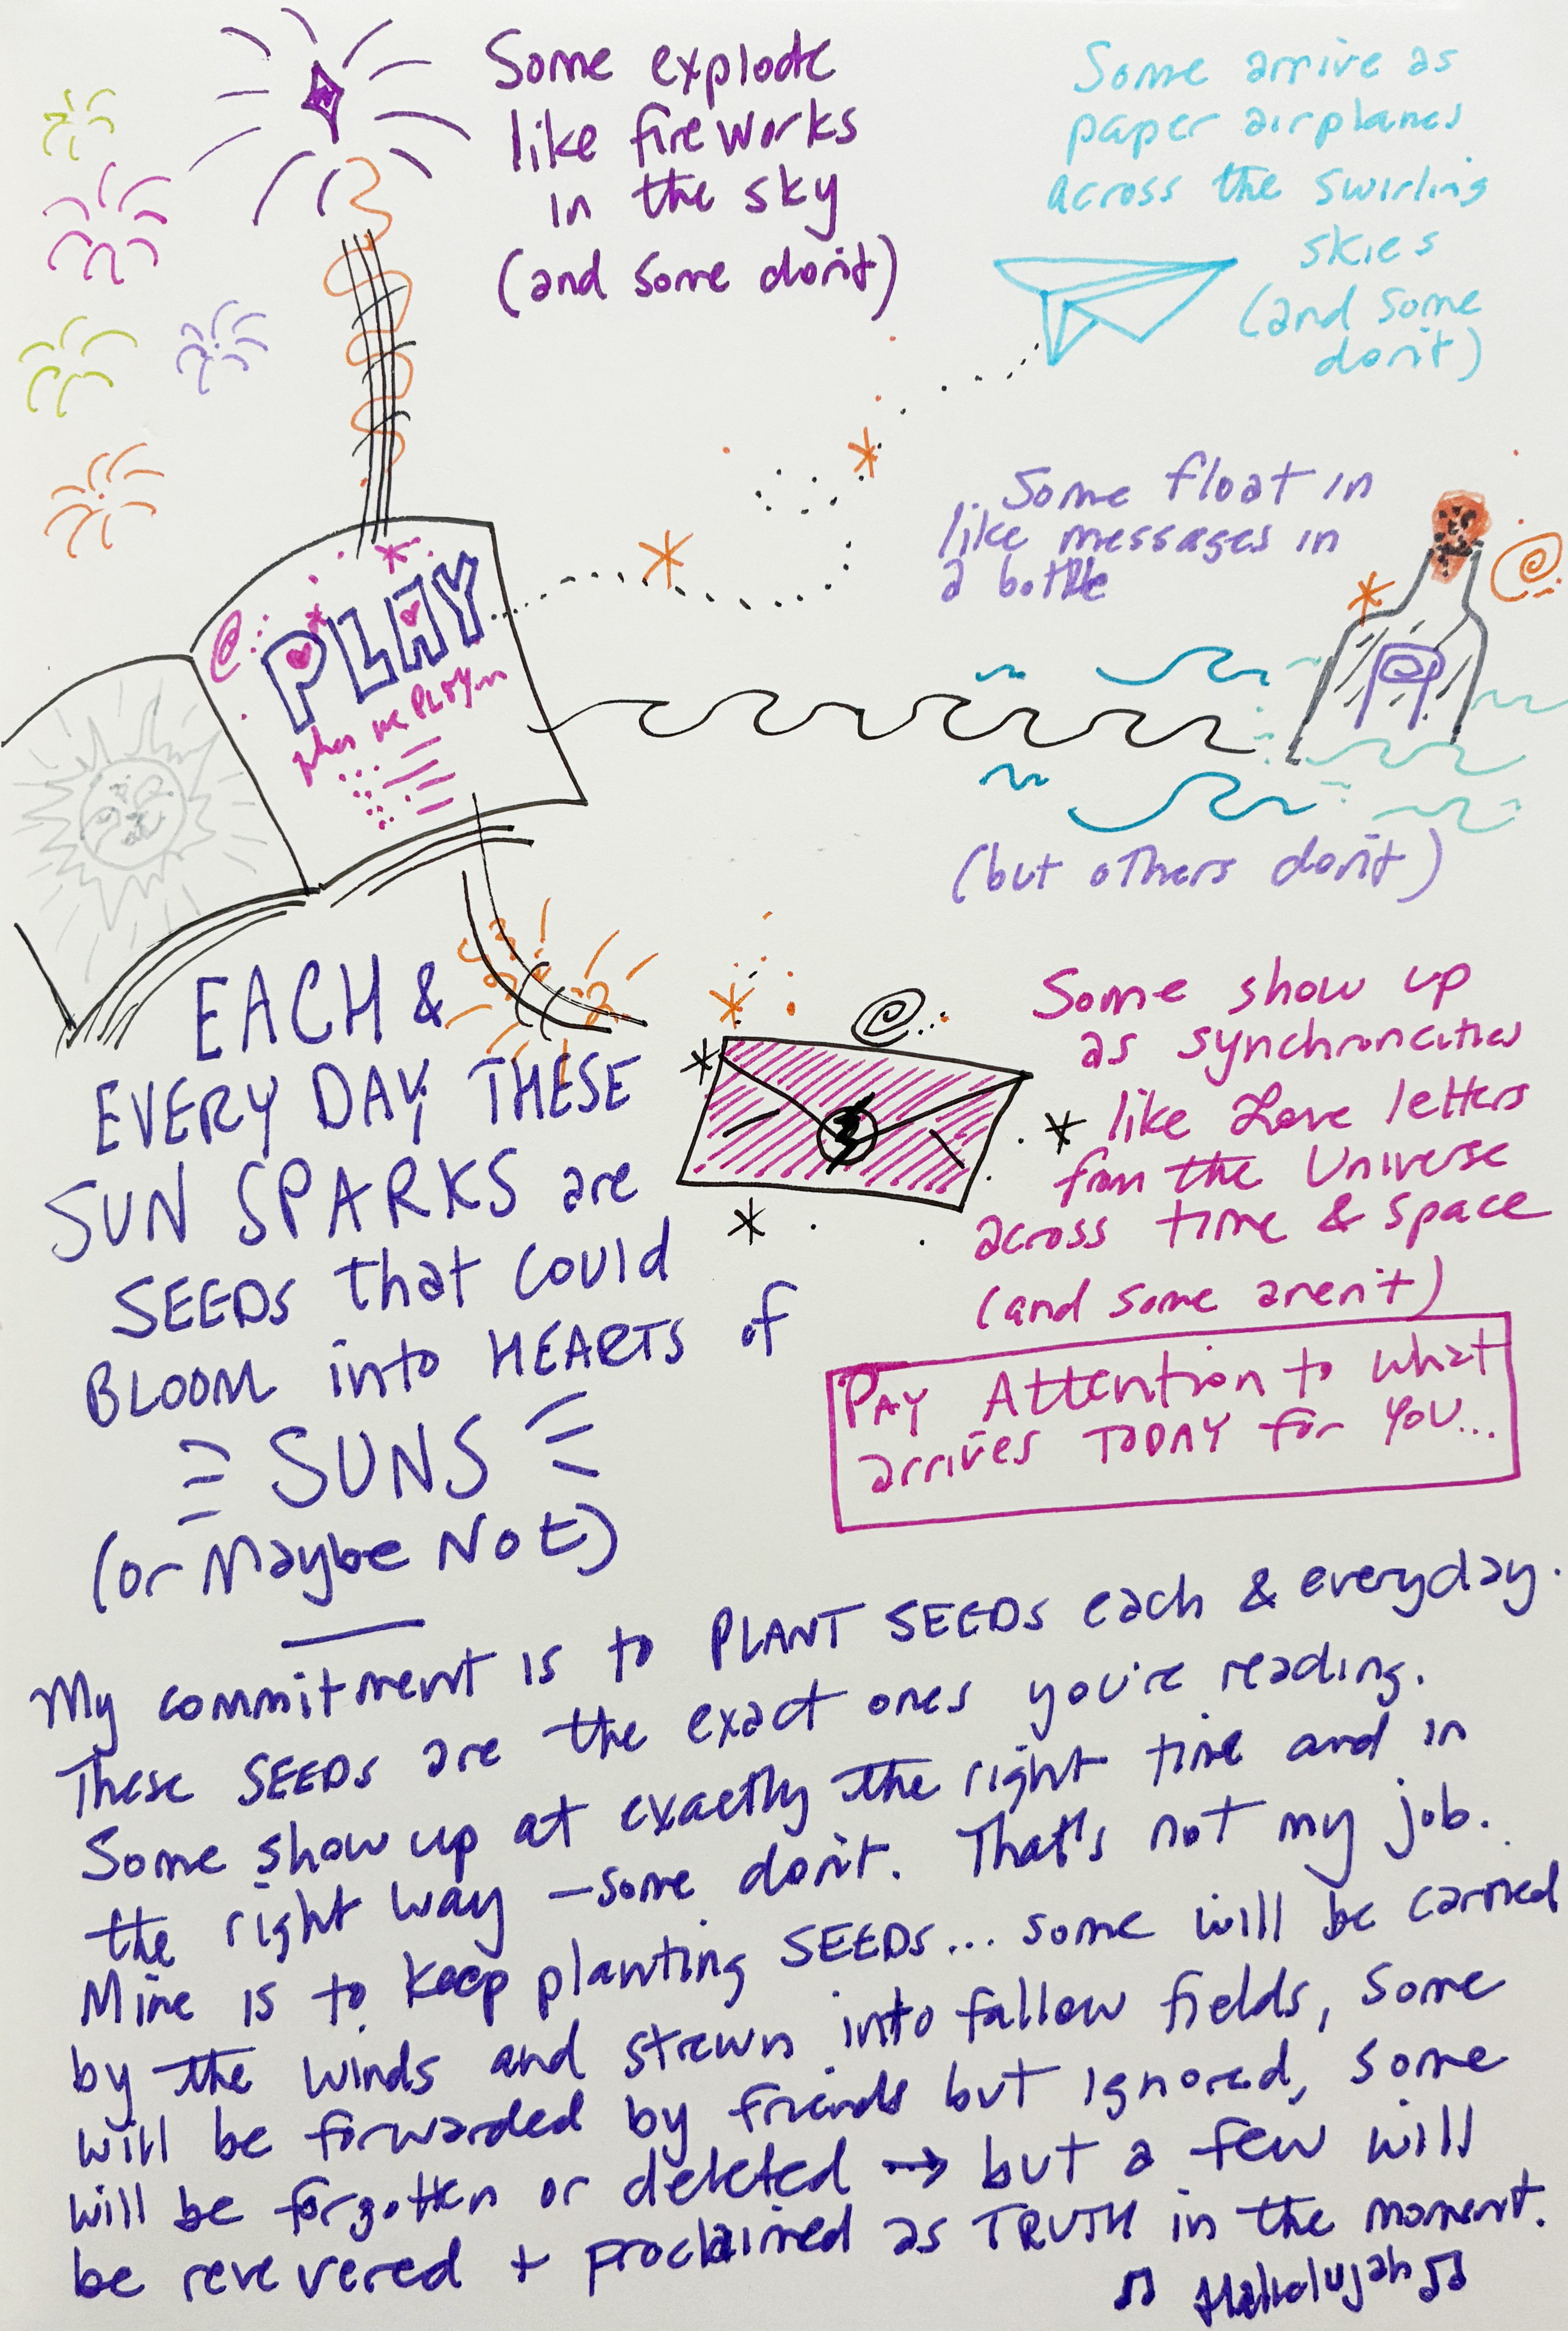 Some explode
like fireworks
in the sky
(and some don't)
Some arrive as
paper airplanes
across the swirling
skies
(and some
don't)
Some float in
like messages in
a bottle
(but others don't)
PLAY
when we PLAY...
EACH &
EVERY DAY, THESE
SUN SPARKS are
SEEDS that could
BLOOM into HEARTS of
SUNS
(or Maybe Not)
Some show up
as synchroncities
like Love letters
from the Universe
across time & space
(and some aren't)
PAY Attention to what
arrives TODAY for YOU...
My commitment is to PLANT SEEDS each & everyday.
These SEEDS are the exact ones you're reading.
Some show up at exactly the right time and in
the right way – some don't. That's not my job.
Mine is to keep planting SEEDS... some will be carried
by the winds and strewn into fallow fields, some
will be forwarded by friends but ignored, some
will be forgotten or deleted → but a few will
be revevered + proclaimed as TRUTH in the moment.
♫ Hallolujah ♫